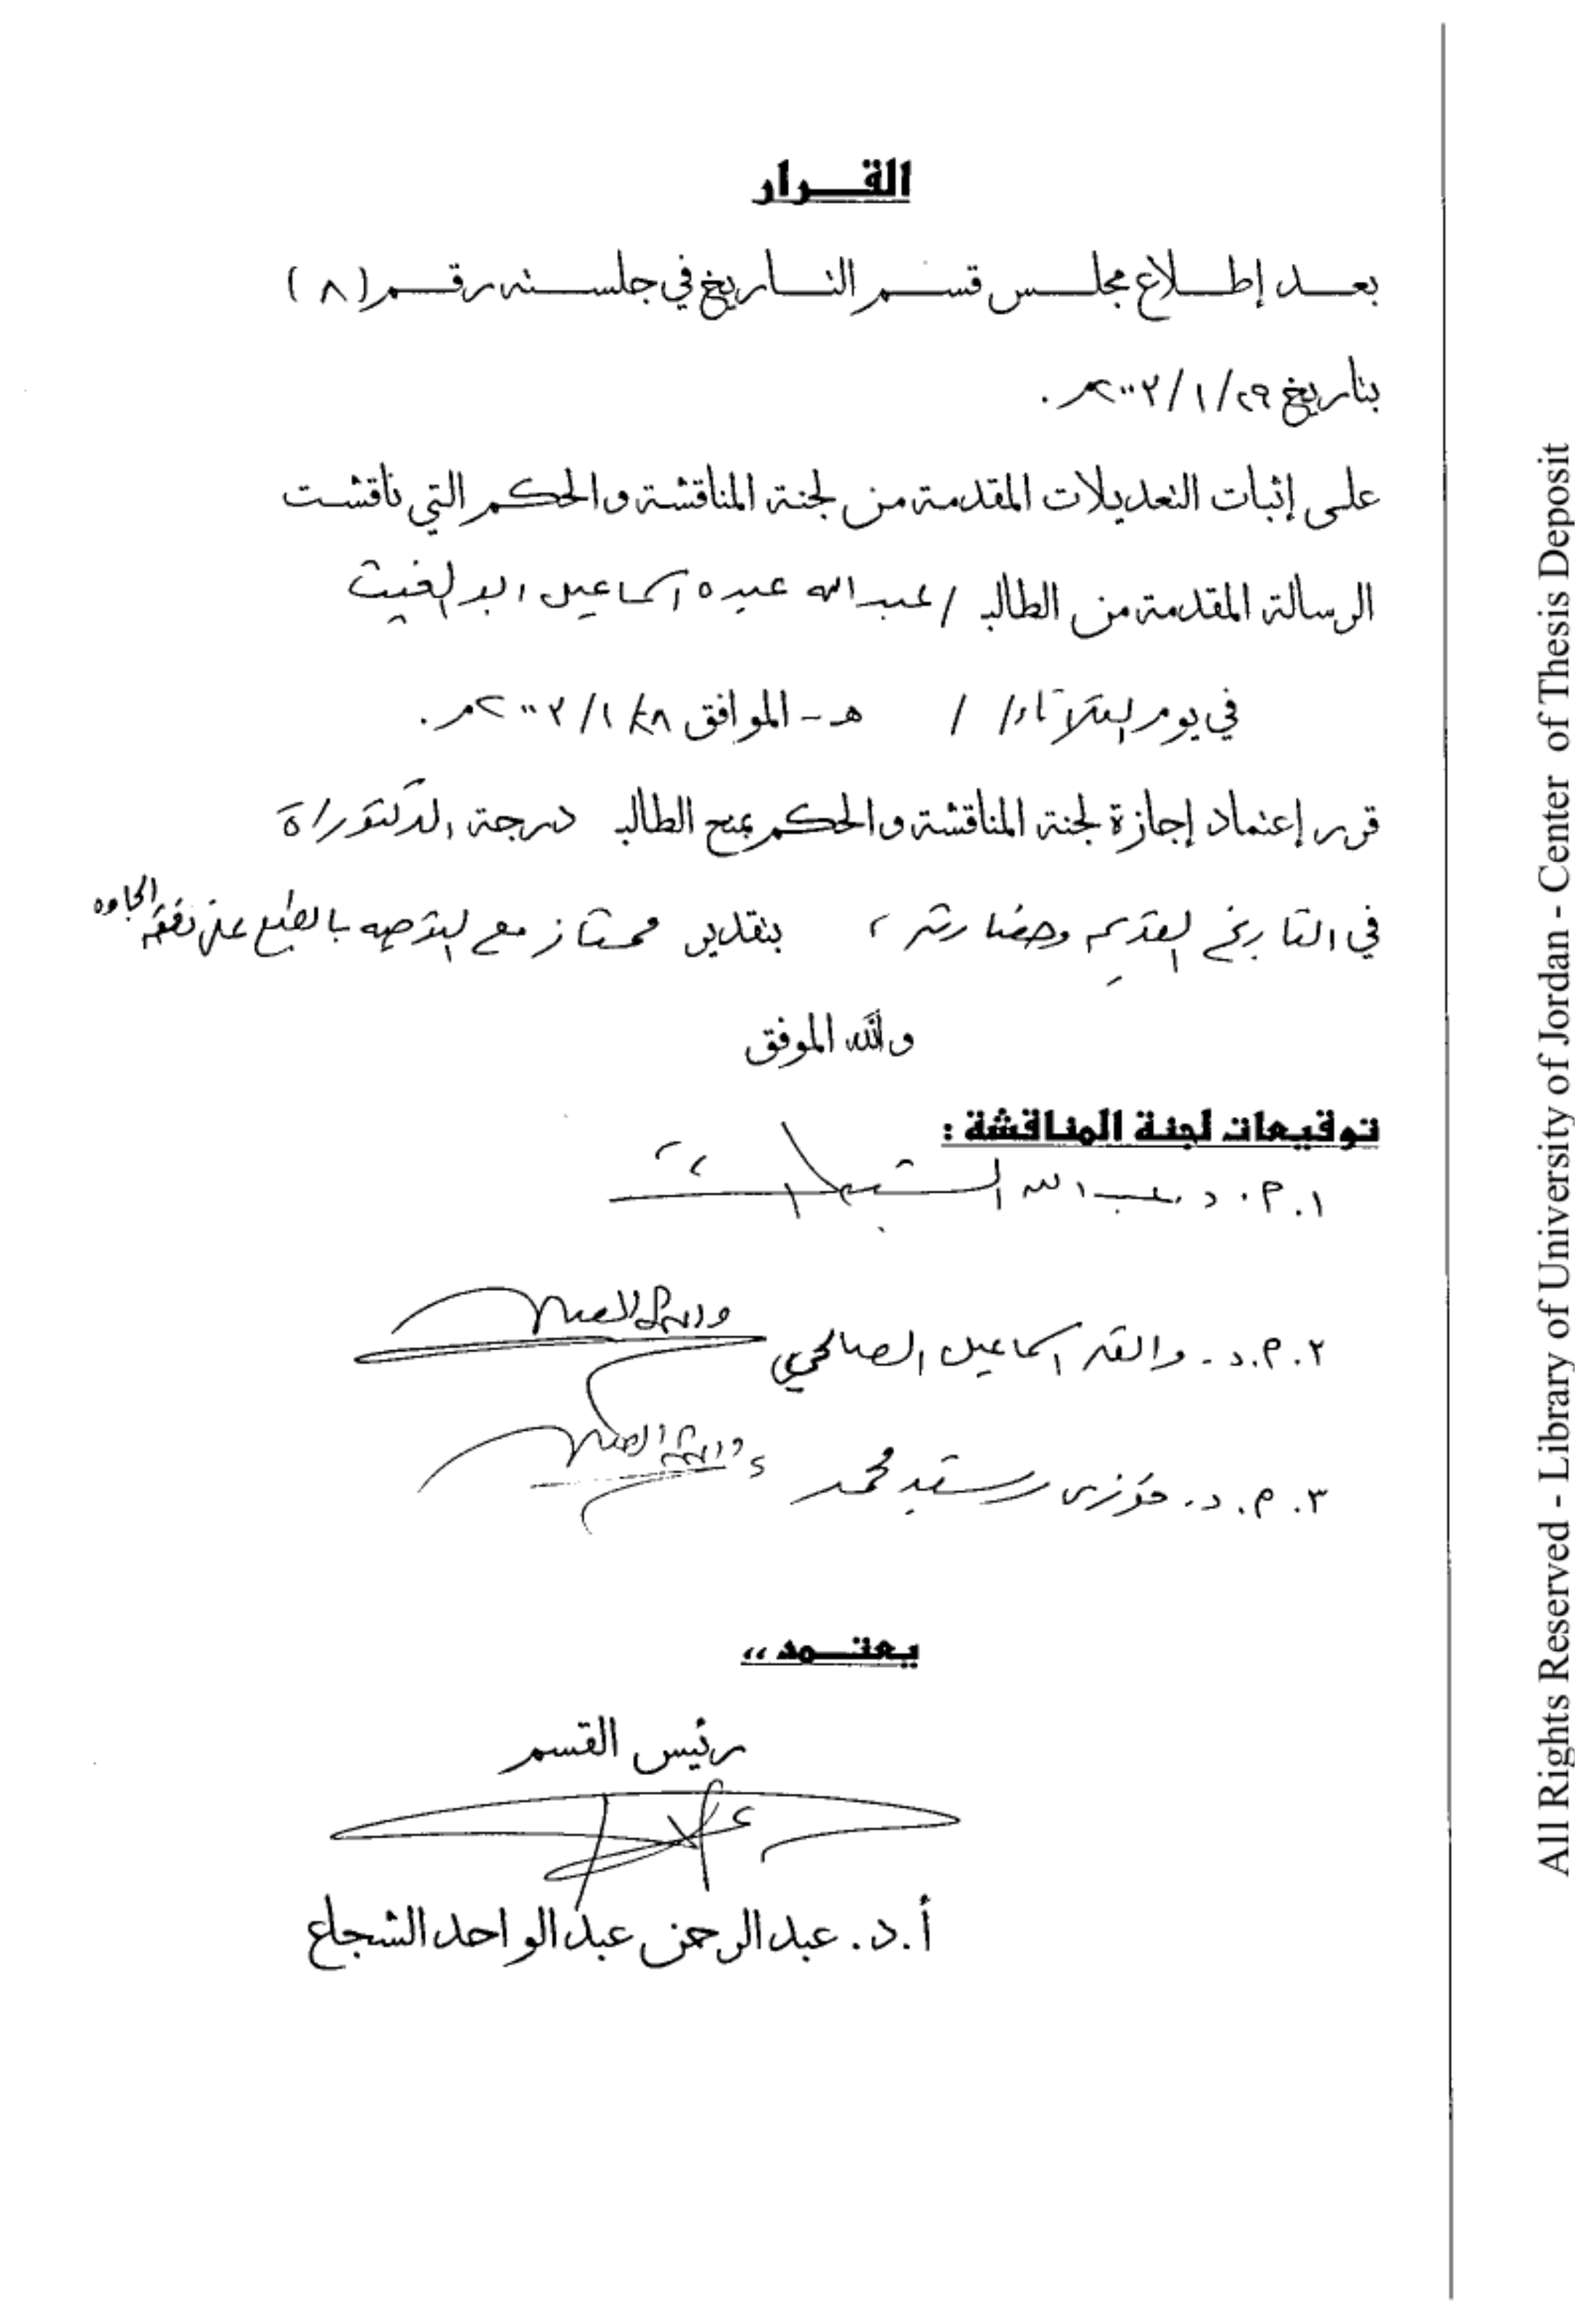 القـــرار
بعـــد إطـــلاع مجلـــس قســـم التـــاريخ في جلســـته رقـــم (٨)
بتاريخ ٢٩/ ١ /٢٠٠٣م .
على إثبات التعديلات المقدمة من لجنة المناقشة والحكم التي ناقشت
الرسالة المقدمة من الطالب / عبد الله عبده اسماعيل ابو الغيث
في يوم الثلاثاء / / هـ - الموافق ٢٨/ ١ /٢٠٠٣م .
قرر إعتماد إجازة لجنة المناقشة والحكم بمنح الطالب درجة الدكتوراة
في التاريخ القديم وحضارته ، بتقدير ممتاز مع التوصيه بالطبع على نفقة الجامعه
والله الموفق
توقيعات لجنة المناقشة :
١. م. د. عبد الله
٢. م. د. واثق اسماعيل الصالحي
٣. م. د. فوزي رشيد محمد
يعتـــمد ،،
رئيس القسم
أ.د. عبدالرحمن عبدالواحد الشجاع
All Rights Reserved - Library of University of Jordan - Center of Thesis Deposit